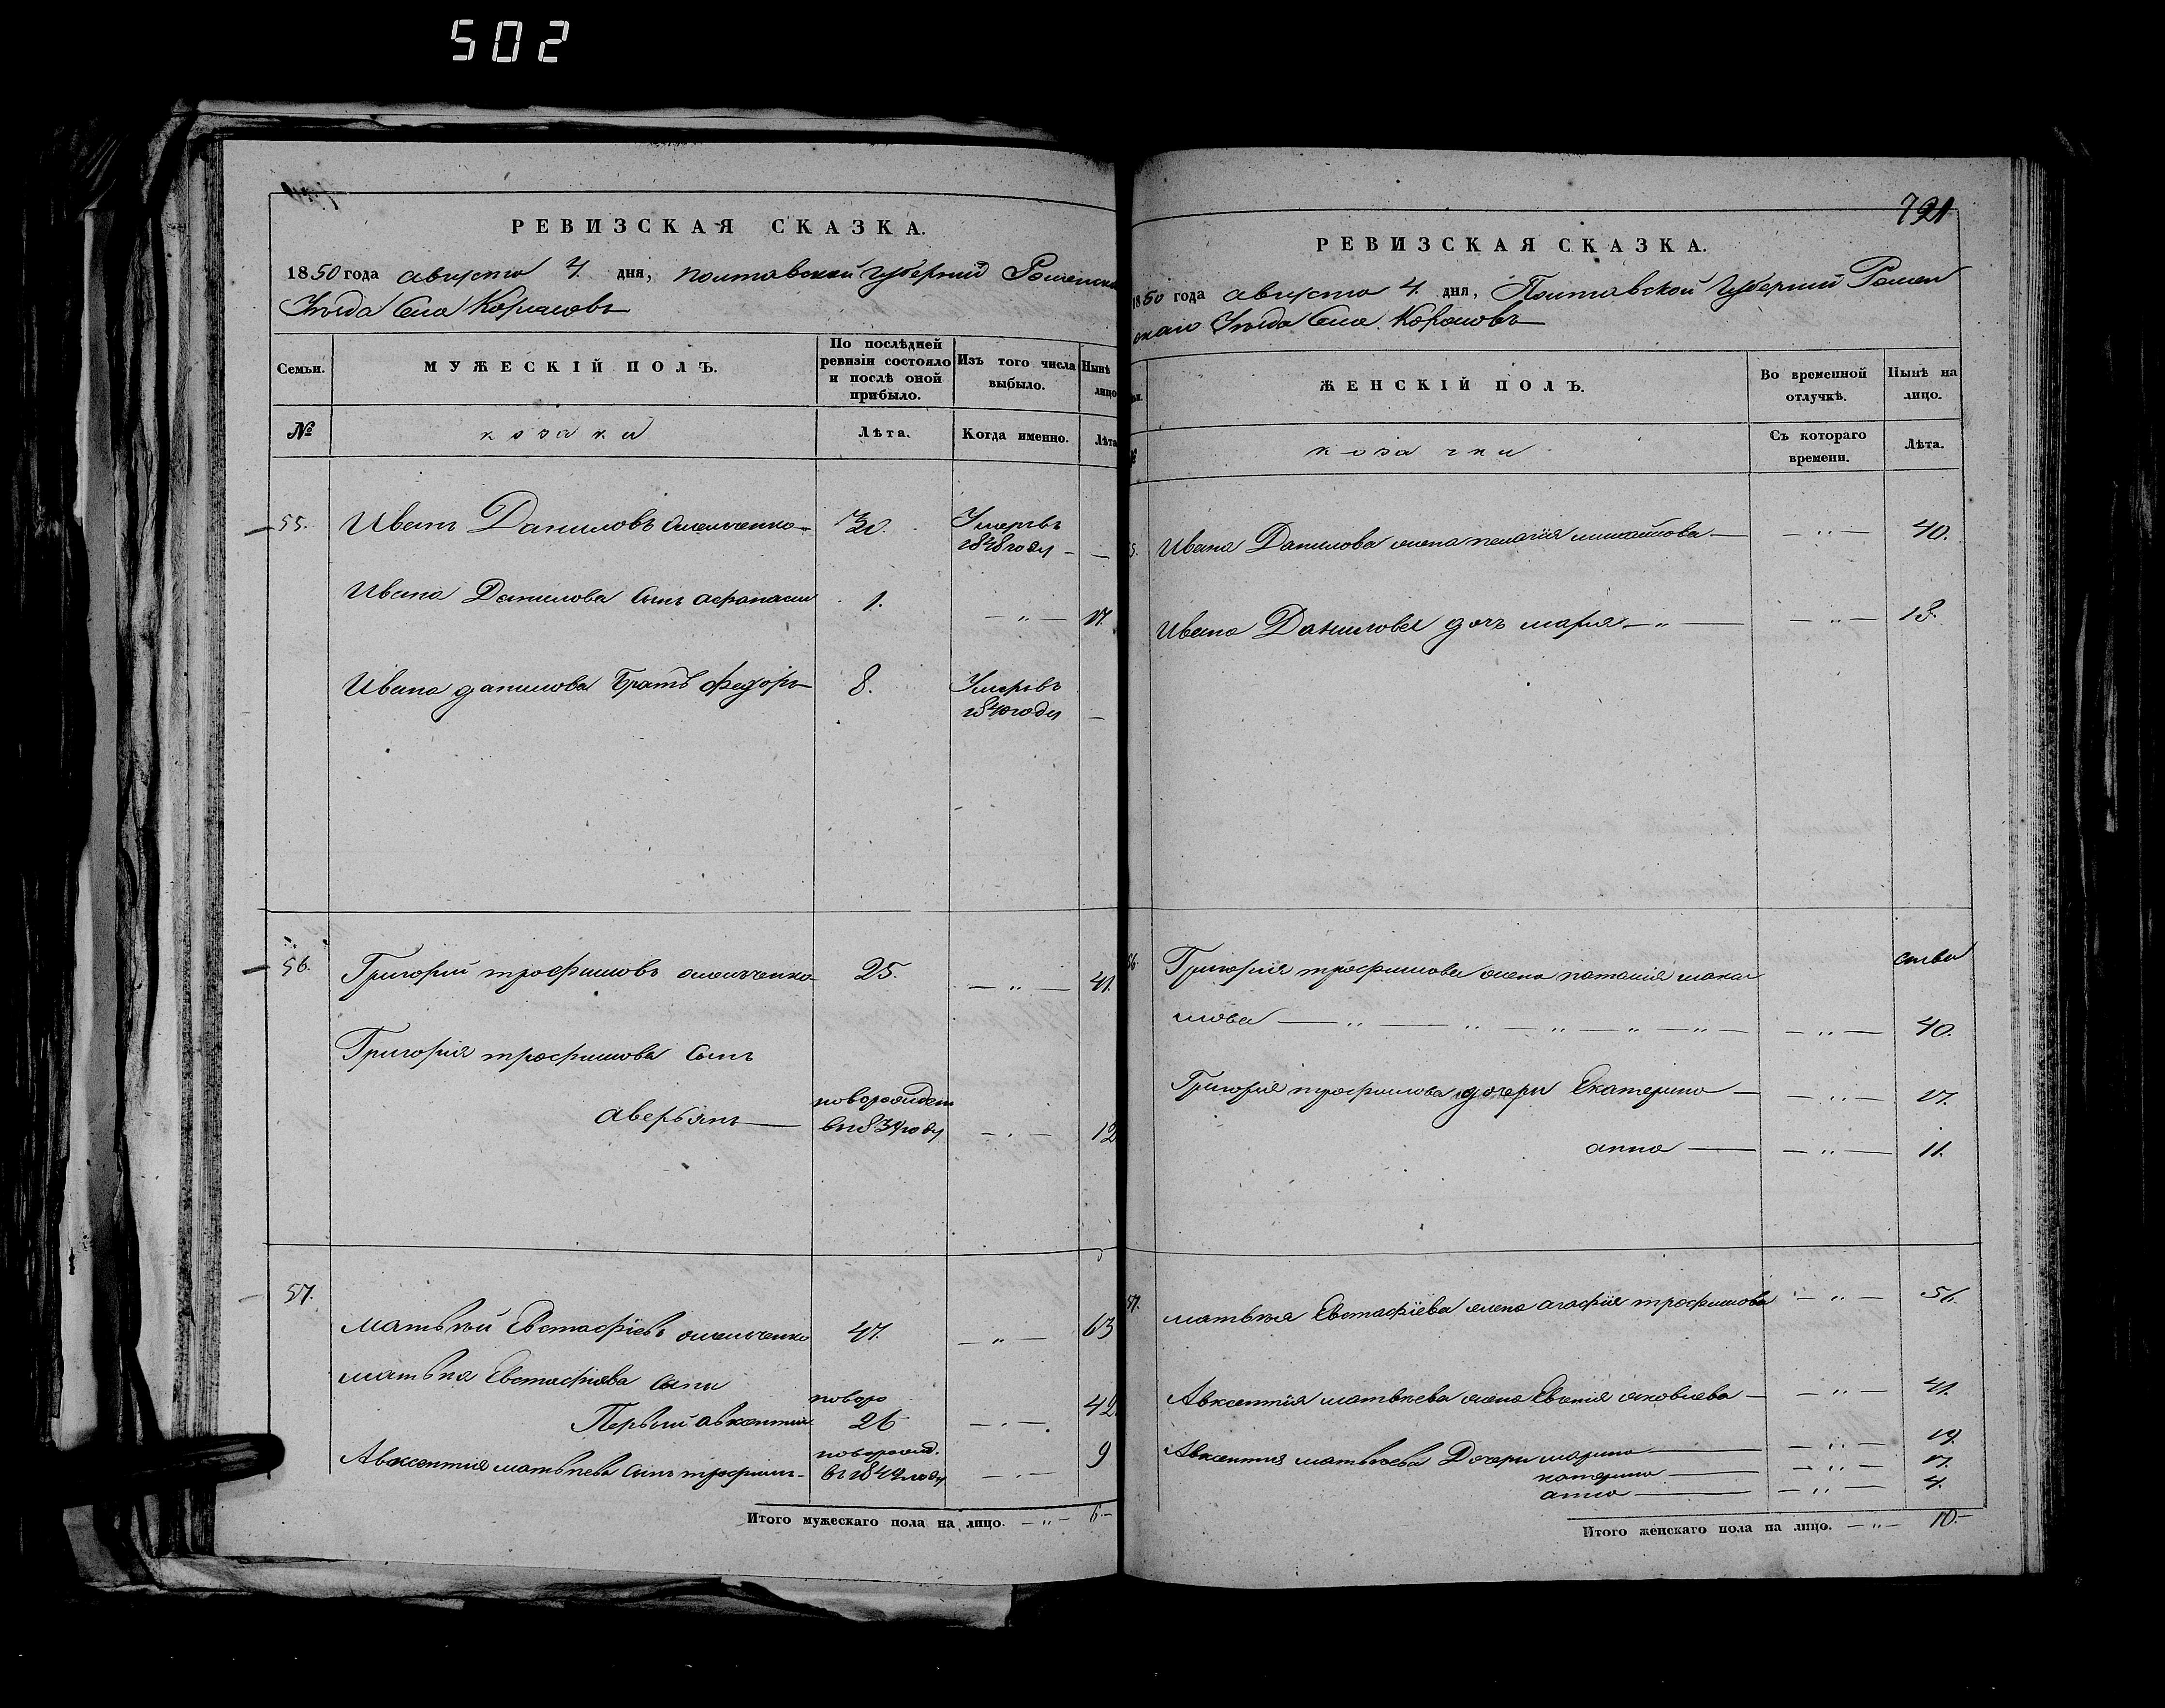 502
РЕВИЗСКАЯ СКАЗКА.
1850 года августа 4. дня, Полтавской Губернии Роменска
Уезда Села Коралювъ
Семьи.
МУЖЕСКІЙ ПОЛЪ.
По послѣдней ревизіи состояло и послѣ оной прибыло.
Изъ того числа выбыло.
Нынѣ лицо
№
козаки
Лѣта.
Когда именно.
Лѣта
55. Иванъ Даниловъ Омельченко 30. Умеръ въ 1848 году —
Ивана Данилова Сынъ афанасий 1. — „ — 17.
Ивана данилова Братъ федоръ 8. Умеръ въ 1840 году —
56. Григорий трофимовъ омельченко 25. — „ — 41.
Григория трофимова Сынъ
аверьянъ новорожден въ 1834 году — „ — 12
57.
матвѣй Евстафіевъ омельченко 47. — „ — 63
матвѣя Евстафіева Сыни
Первый авксентий 26 — „ — 42
новорожд.
Авксентия матвѣева Сынъ трофимъ въ 1842 году — „ — 9
Итого мужескаго пола на лицо. — „ — 6.—
721
РЕВИЗСКАЯ СКАЗКА.
1850 года августа 4. дня, Полтавской Губернии Ромен
скаго Уезда Села
ЖЕНСКІЙ ПОЛЪ.
Во временной отлучкѣ.
Нынѣ на лицо.
козачки
Съ котораго времени.
Лѣта.
Ивана Данилова жена пелагия михайлова — — „ — 40.
Ивана Данилова дочь мария — „ — — „ — 13.
56. Григория трофимова жена наталия мака
мова — „ — „ — „ — „ — „ — — „ — 40.
Григория трофимова дочери Екатерина — — „ — 17.
анна — — „ — 11.
57. матвѣя Евстафіева жена агафия трофимова — „ — 56.
Авксентия матвѣева жена яковлева — — „ — 41.
Авксентия матвѣева Дочери марина — — „ — 19.
катерина — — „ — 17.
анна — — „ — 4.
Итого женскаго пола на лицо. — „ — 10.—